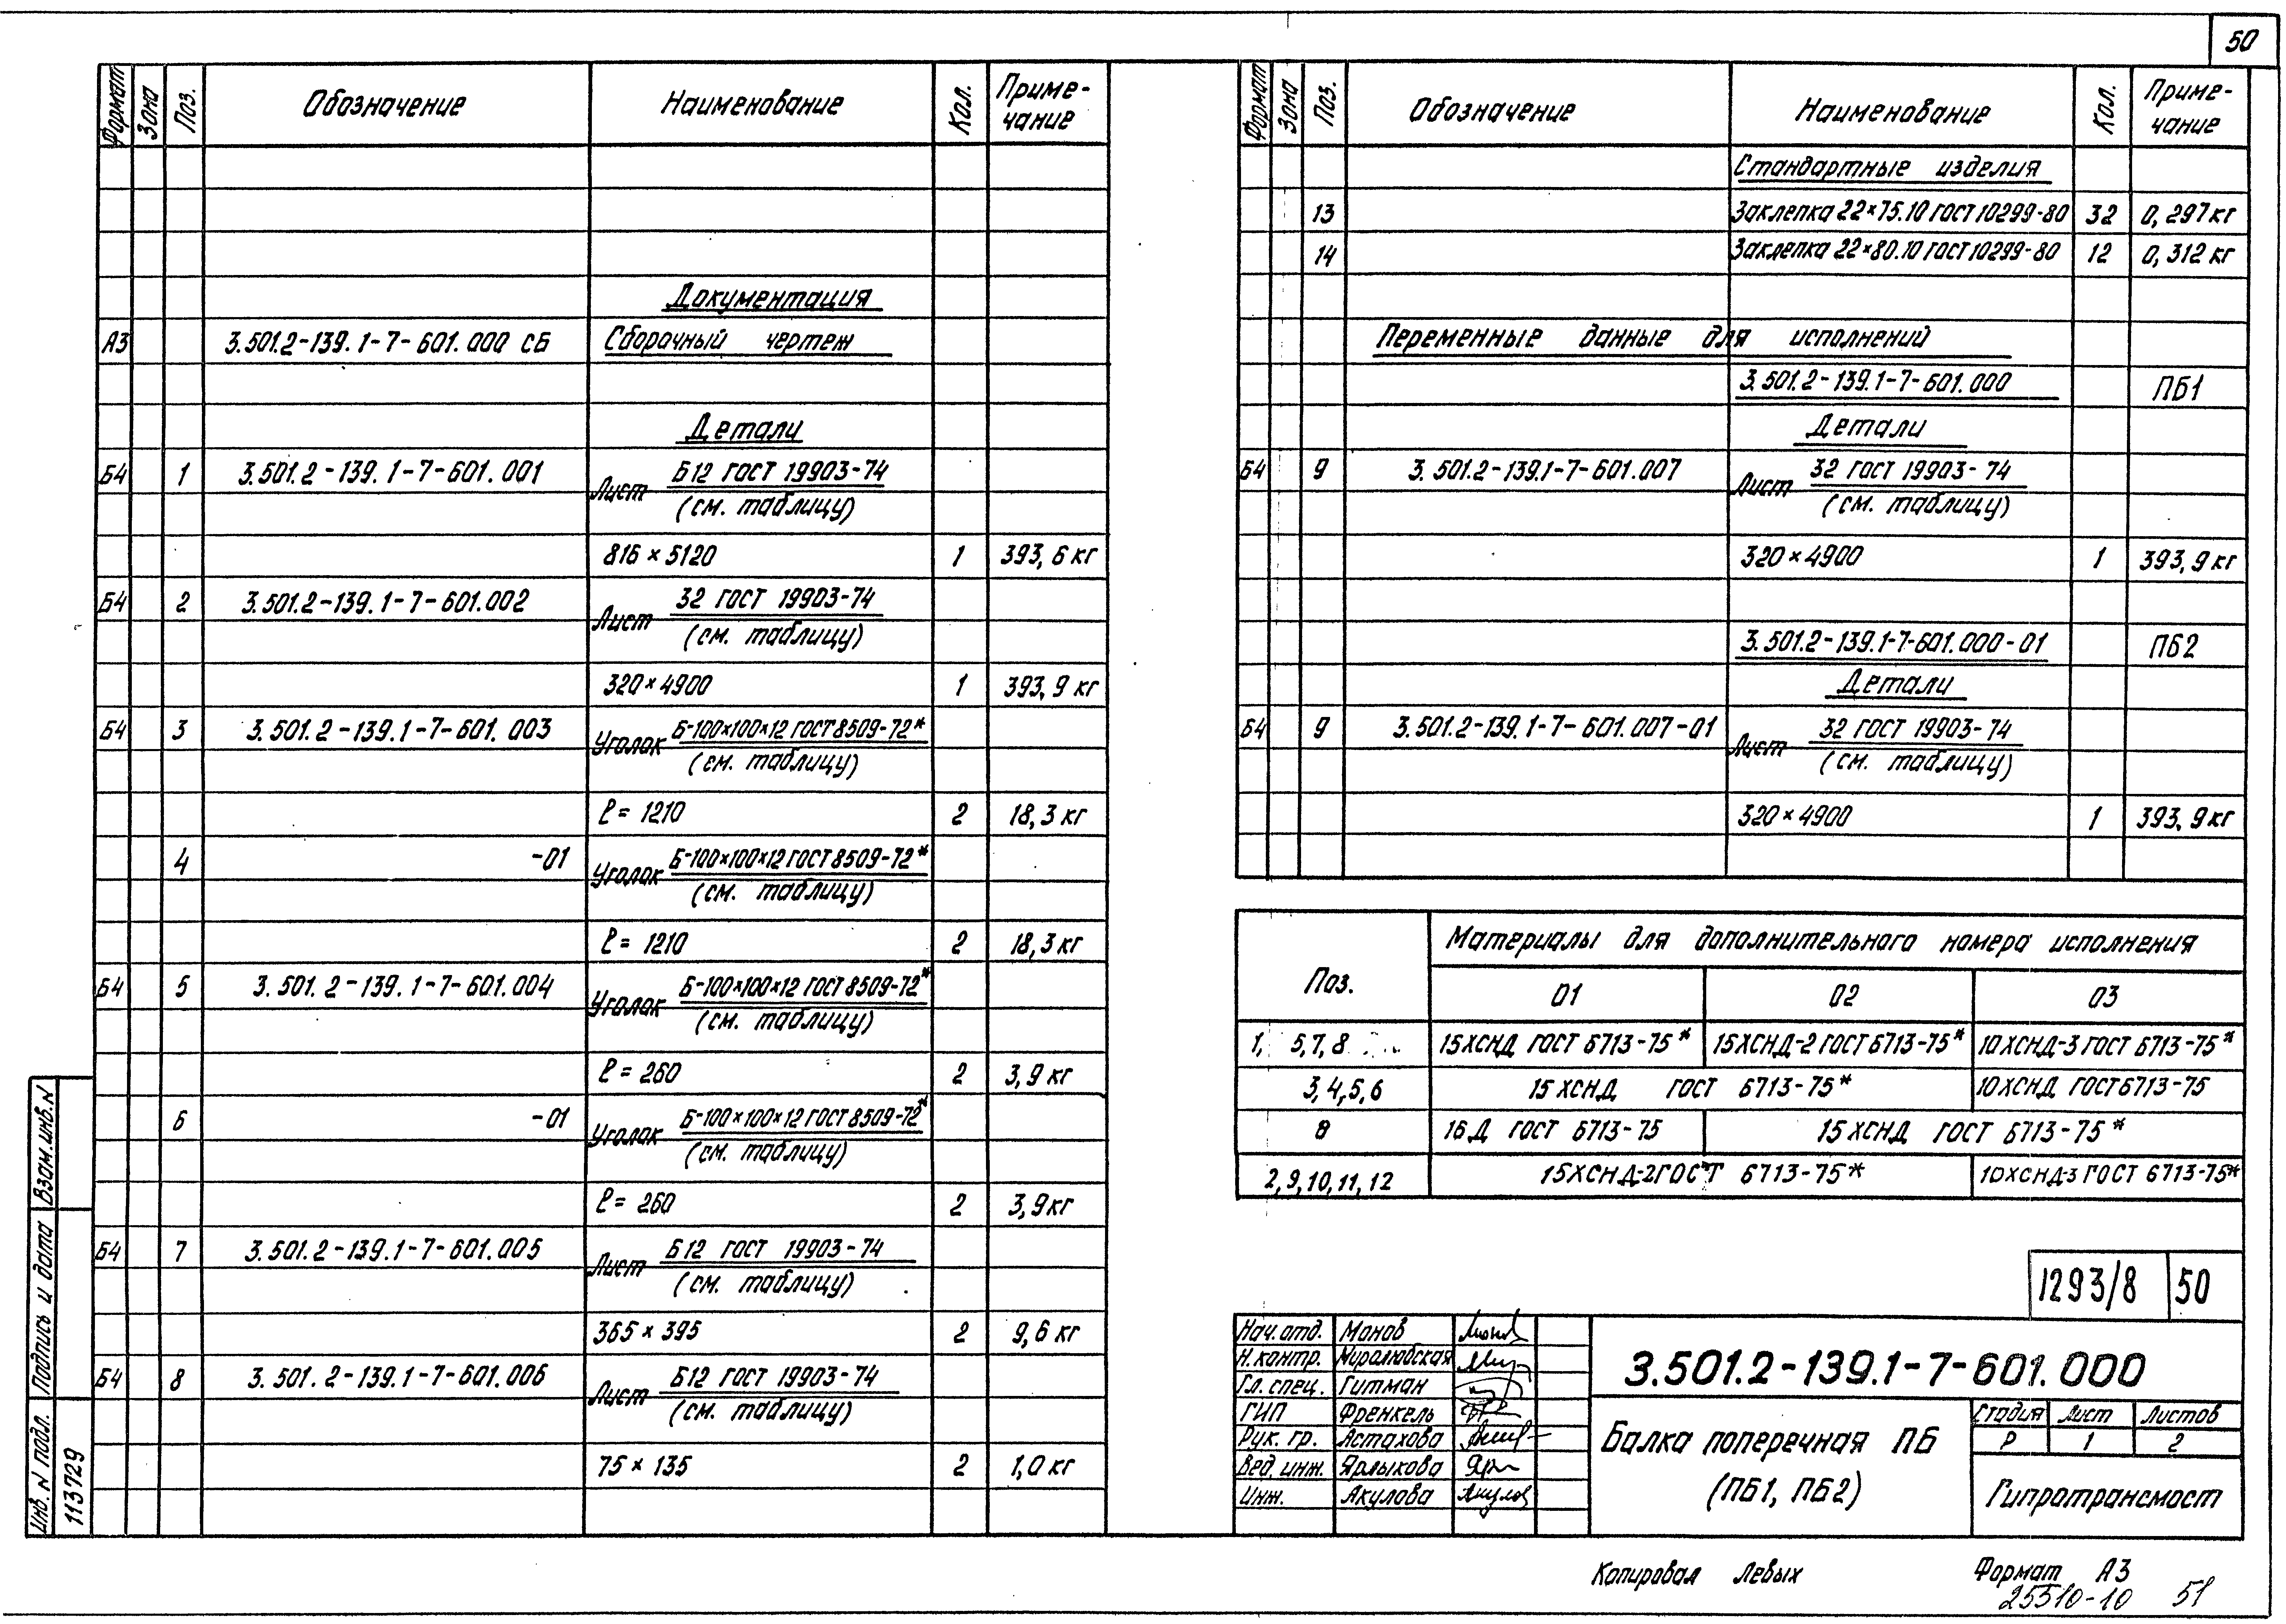 50
Формат Зона Поз. Обозначение Наименование Кол. Приме-чание
Документация
А3 3.501.2-139.1-7-601.000 СБ Сборочный чертеж
Детали
Б4 1 3.501.2-139.1-7-601.001 Лист Б12 ГОСТ 19903-74
(см. таблицу)
816 × 5120 1 393,6 кг
Б4 2 3.501.2-139.1-7-601.002 Лист 32 ГОСТ 19903-74
(см. таблицу)
320 × 4900 1 393,9 кг
Б4 3 3.501.2-139.1-7-601.003 Уголок Б-100×100×12 ГОСТ 8509-72*
(см. таблицу)
ℓ = 1210 2 18,3 кг
4 -01 Уголок Б-100×100×12 ГОСТ 8509-72*
(см. таблицу)
ℓ = 1210 2 18,3 кг
Б4 5 3.501.2-139.1-7-601.004 Уголок Б-100×100×12 ГОСТ 8509-72*
(см. таблицу)
ℓ = 260 2 3,9 кг
6 -01 Уголок Б-100×100×12 ГОСТ 8509-72*
(см. таблицу)
ℓ = 260 2 3,9 кг
Б4 7 3.501.2-139.1-7-601.005 Лист Б12 ГОСТ 19903-74
(см. таблицу)
365 × 395 2 9,6 кг
Б4 8 3.501.2-139.1-7-601.006 Лист Б12 ГОСТ 19903-74
(см. таблицу)
75 × 135 2 1,0 кг
Формат Зона Поз. Обозначение Наименование Кол. Приме-чание
Стандартные изделия
13 Заклепка 22×75.10 ГОСТ 10299-80 32 0,297 кг
14 Заклепка 22×80.10 ГОСТ 10299-80 12 0,312 кг
Переменные данные для исполнений
3.501.2-139.1-7-601.000 ПБ1
Детали
Б4 9 3.501.2-139.1-7-601.007 Лист 32 ГОСТ 19903-74
(см. таблицу)
320 × 4900 1 393,9 кг
3.501.2-139.1-7-601.000-01 ПБ2
Детали
Б4 9 3.501.2-139.1-7-601.007-01 Лист 32 ГОСТ 19903-74
(см. таблицу)
320 × 4900 1 393,9 кг
Поз. Материалы для дополнительного номера исполнения
01 02 03
1, 5,7,8 15ХСНД ГОСТ 6713-75* 15ХСНД-2 ГОСТ 6713-75* 10ХСНД-3 ГОСТ 6713-75*
3,4,5,6 15ХСНД ГОСТ 6713-75* 10ХСНД ГОСТ 6713-75
8 16Д ГОСТ 6713-75 15ХСНД ГОСТ 6713-75*
2,9,10,11,12 15ХСНД-2 ГОСТ 6713-75* 10ХСНД-3 ГОСТ 6713-75*
1293/8 50
Нач. отд. Монов
Н. контр. Миролюбская
Гл. спец. Гитман
ГИП Френкель
Рук. гр. Астахова
Вед. инж. Ярлыкова
Инж. Акулова
3.501.2-139.1-7-601.000
Балка поперечная ПБ
(ПБ1, ПБ2)
Стадия Лист Листов
Р 1 2
Гипротрансмост
Инв. N подл. Подпись и дата Взам. инв. N
113729
Копировал Левых Формат А3
25510-10 51